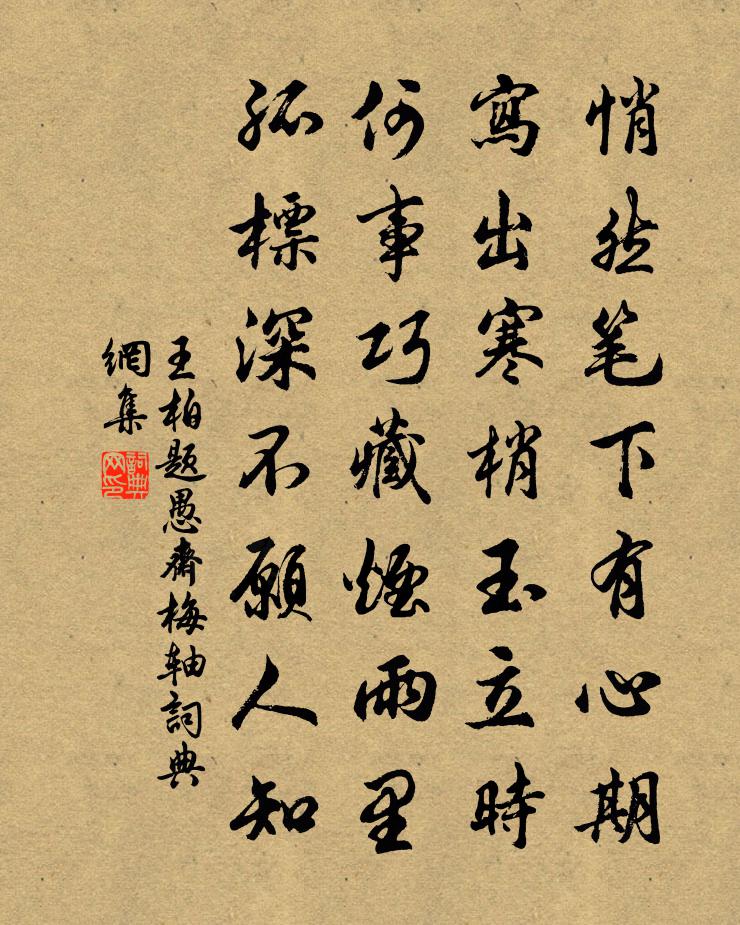 悄然笔下有心期
寫出寒梢玉立時
何事巧藏煙雨里
孤標深不願人知
王柏題愚齋梅軸詞典
網集
詞典
网印